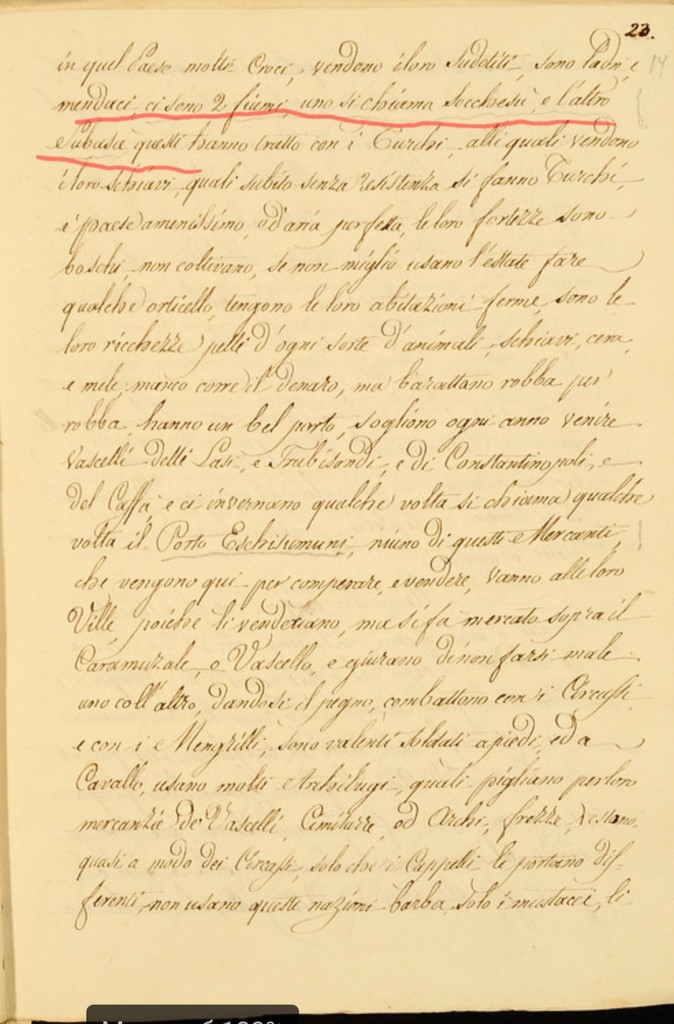 23.
14
in quel Paese molti Croci, vendono i loro Sudditi, sono ladri, e
mendaci, ci sono 2 fiumi, uno si chiama Socchesù, e l'altro
Subasù questi hanno tratto con i Turchi, alli quali vendono
i loro schiavi, quali subito senza resistenza si fanno Turchi,
è paese amenissimo, ed aria perfetta, le loro fortezze sono
boschi, non coltivano, se non miglio usano l'estate fare
qualche orticello, tengono le loro abitazioni ferme, sono le
loro ricchezze pelli d'ogni sorte d'animali, schiavi, cera,
e mele, manco corre il denaro, ma barattano robba per
robba, hanno un bel porto, sogliono ogni anno venire
Vascelli delli Lasi, e Trabisondi, e di Constantinopoli, e
del Caffa, e ci invernano qualche volta si chiama qualche
volta il Porto Eschisumuni, niuno di questi Mercanti,
che vengono qui per comperare, e vendere, vanno alle loro
Ville, poiche li venderiano, ma si fa mercato sopra il
Caramusale, o Vascello, e giurano di non farsi male
uno coll'altro, dandosi il pegno, combattono con i Circassi
e con i Mengrilli, sono valenti soldati a piedi, ed a
Cavallo, usano molti Archibugi, quali pigliano per loro
mercanzie de' Vascelli, Cimitarre, ed Archi, frezze, vestono
quasi a modo dei Circassi, solo che i Cappelli le portano dif-
ferenti, non usano queste nazioni barba, solo i mustacci, li